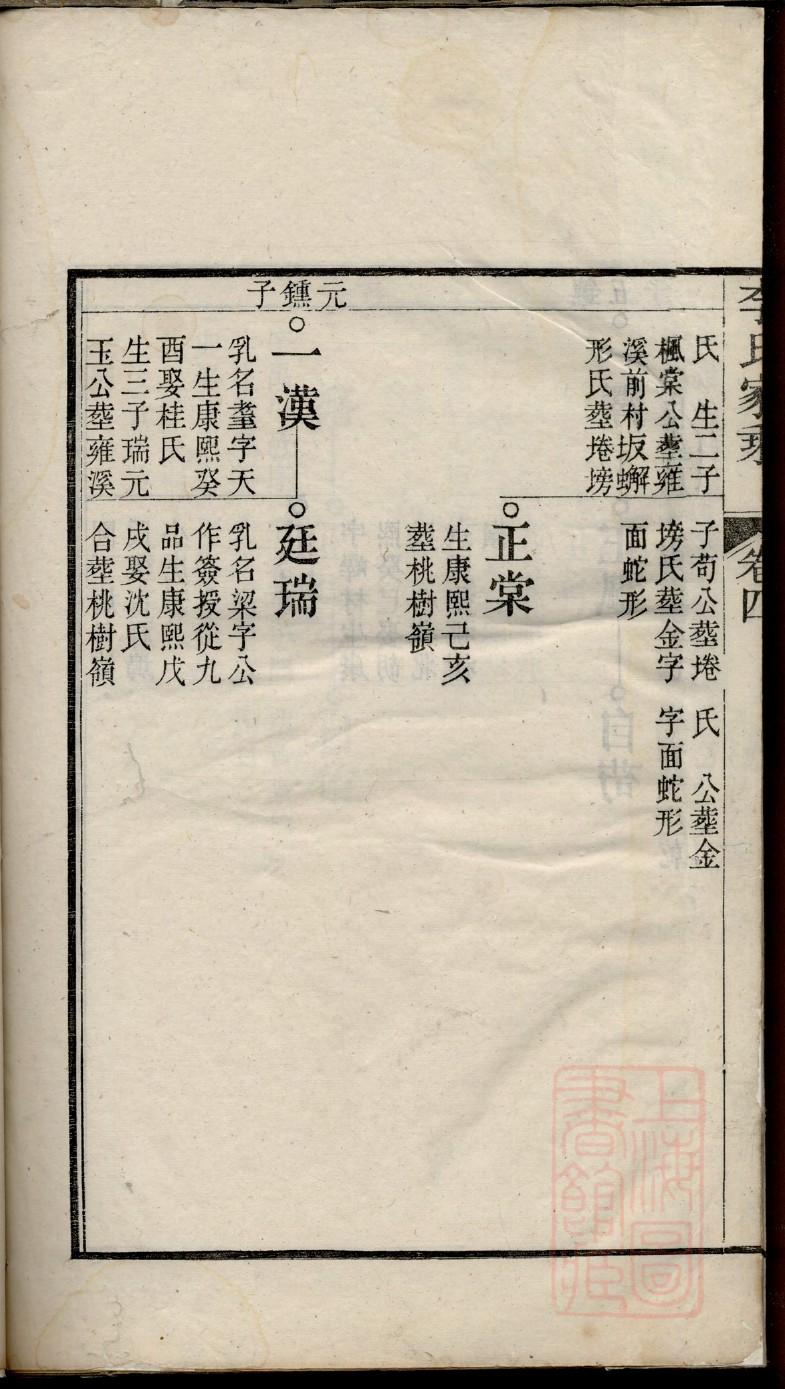 李氏家乘
卷四
氏 生二子
楓棠公塟雍
溪前村坂蠏
形氏塟埢塝
子苟公塟埢
塝氏塟金字
面蛇形
氏 公塟金
字面蛇形
正棠
生康熙己亥
塟桃樹嶺
元鑂子
一漢
乳名耋字天
一生康熙癸
酉娶桂氏
生三子瑞元
玉公塟雍溪
廷瑞
乳名梁字公
作簽授從九
品生康熙戊
戌娶沈氏
合塟桃樹嶺
上海圖
書館藏